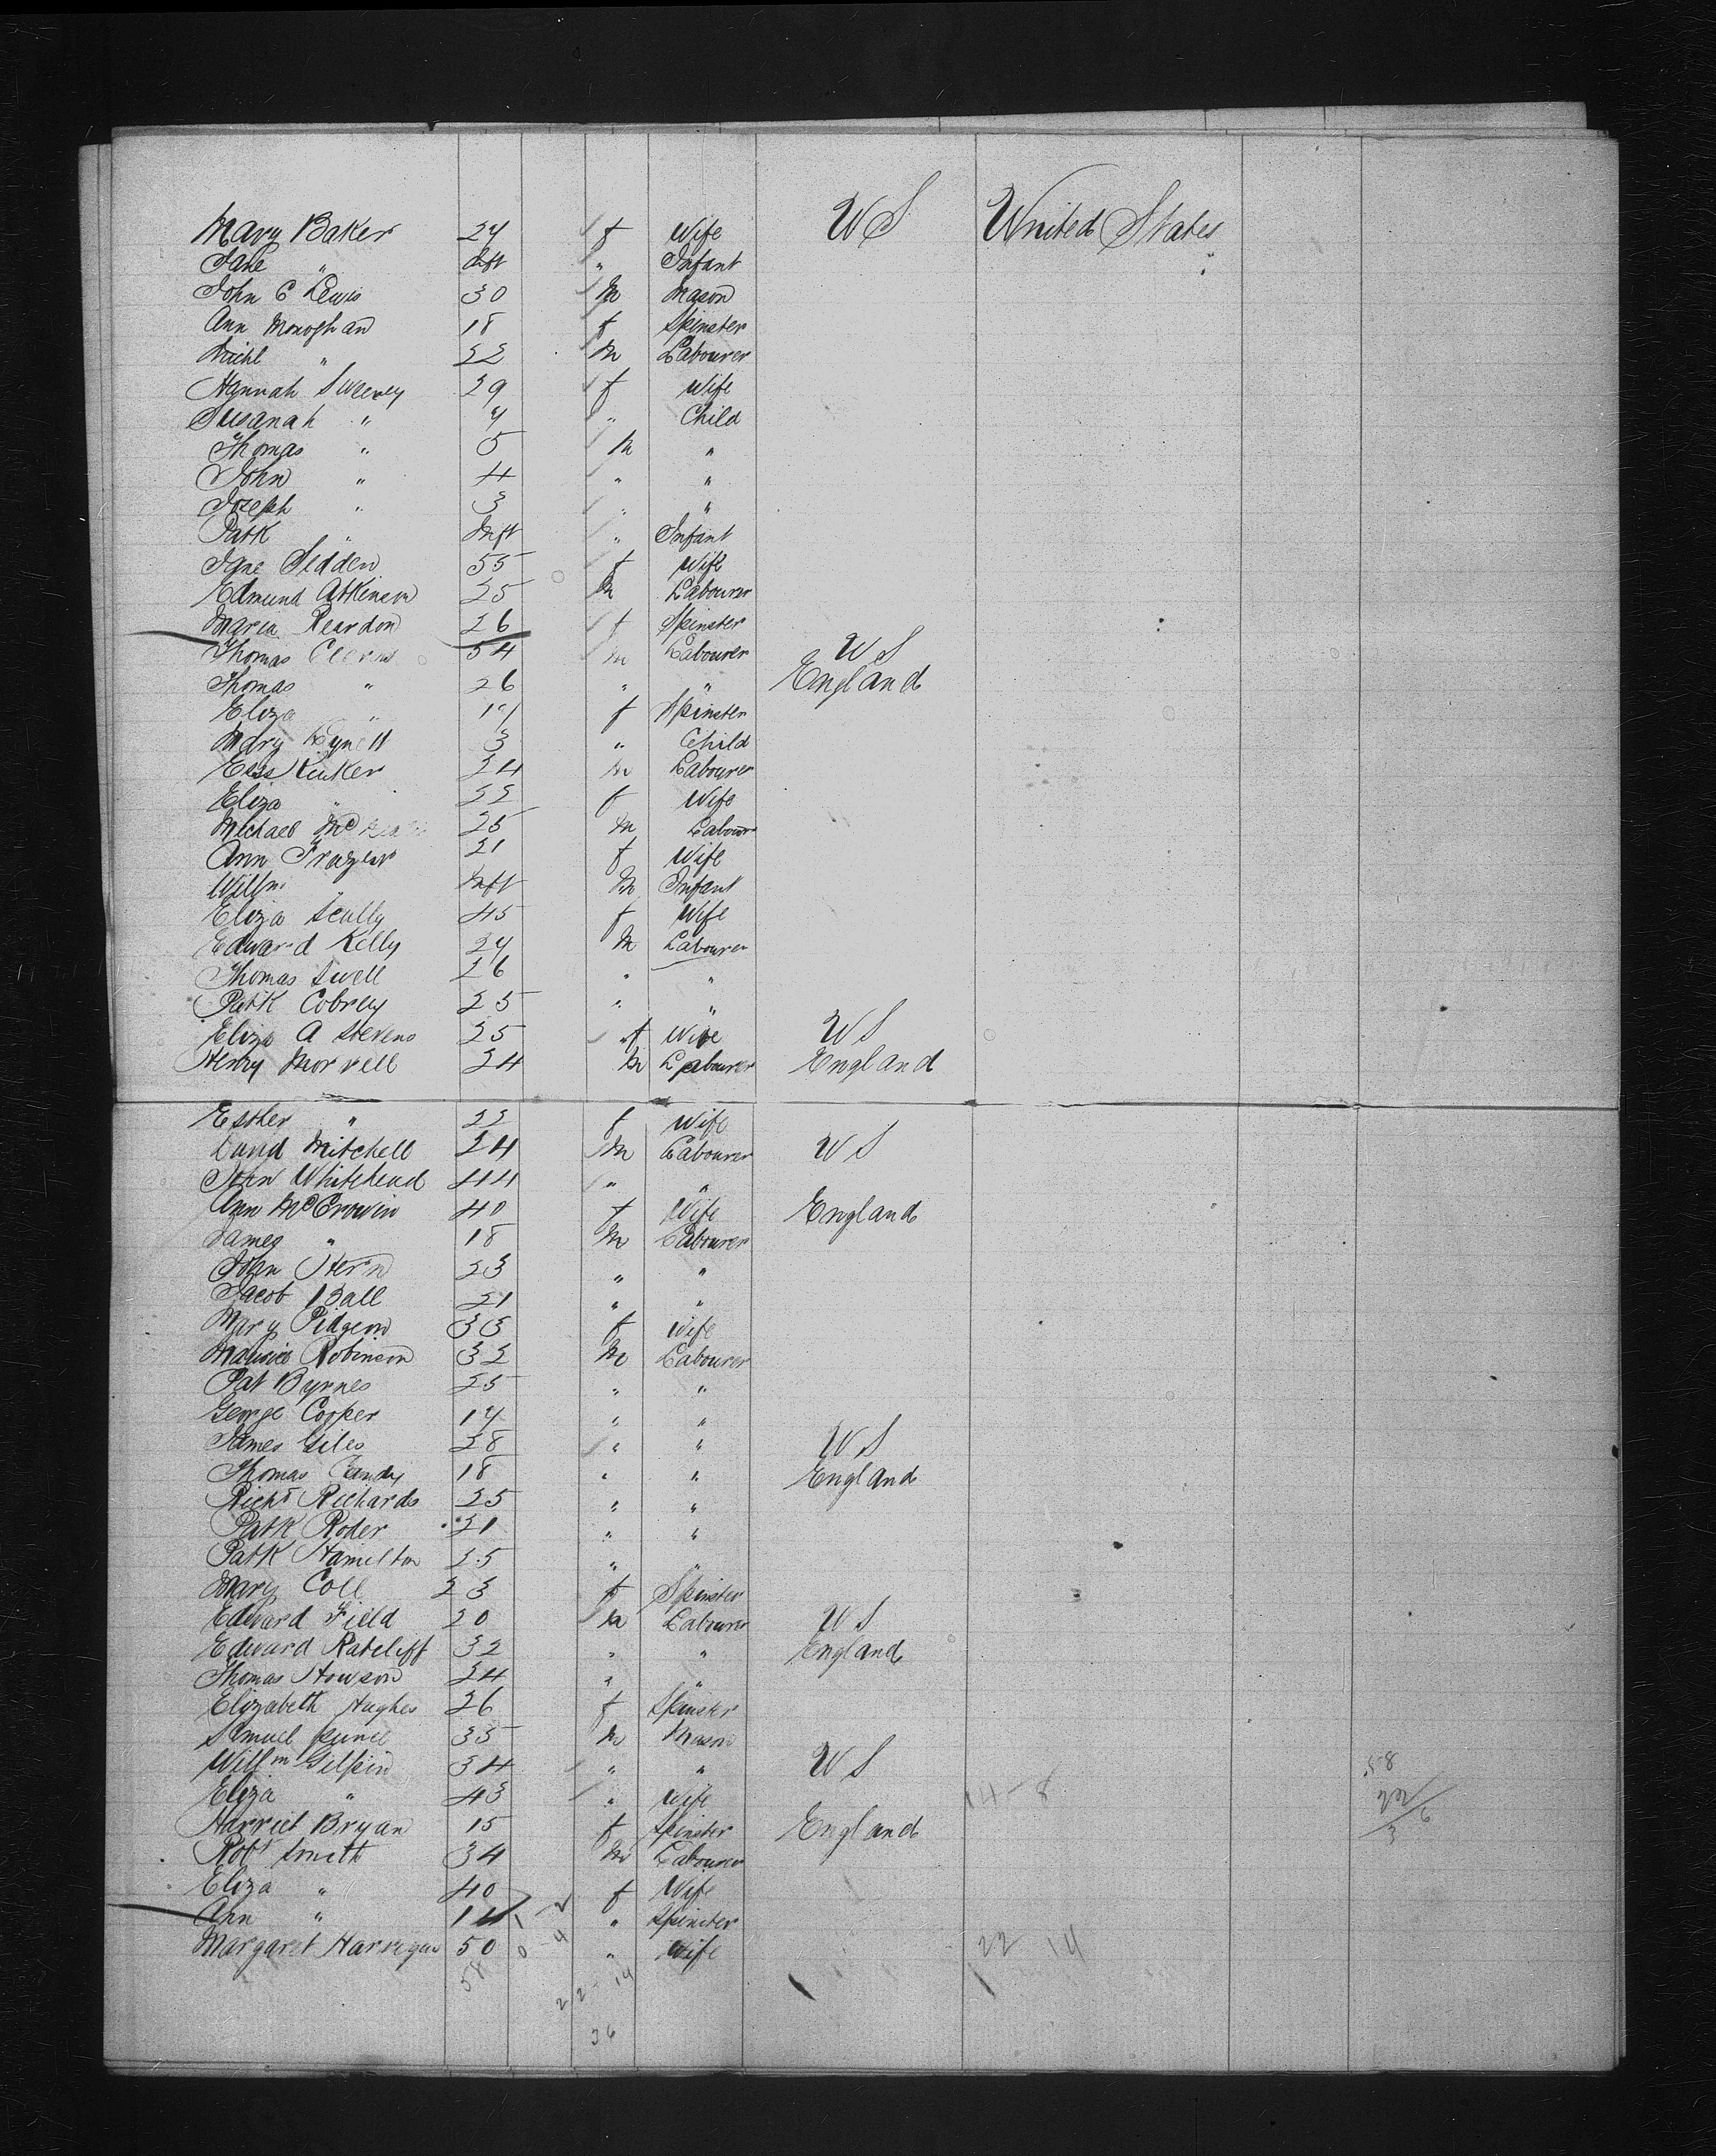 Mary Baker 24 f Wife US United States
Jane " Inft " Infant
John C Lewis 30 m Mason
Ann Monoghan 18 f Spinster
Michl " 22 m Labourer
Hannah Sweeney 29 f Wife
Susanah " 7 " Child
Thomas " 5 m "
John " 4 " "
Joseph " 3 " "
Patk " Inft " Infant
Jane Sedden 55 f Wife
Edmund Atkinson 25 m Labourer
Maria Reardon 26 f Spinster
Thomas 54 m Labourer US
Thomas " 26 " " England
Eliza " 17 f Spinster
Mary 3 " Child
Kinker 24 m Labourer
Eliza " 22 f Wife
Michael Mc 25 m Labour
Ann Frazier 21 f Wife
Willm " Inft m Infant
Eliza Scully 45 f Wife
Edward Kelly 24 m Labourer
Thomas Swell 26 " "
Patk Cobrey 25 " "
Eliza A Stevens 25 f Wife US
Henry Morrell 24 m Labourer England
Esther " 22 f Wife
David Mitchell 24 m Labourer US
John Whitehead 44 " "
Ann McCrowin 40 f Wife England
James " 18 m Labourer
John Stern 23 " "
Jacob Ball 21 " "
Mary Pidgeon 33 f Wife
Maurice Robinson 32 m Labourer
Pat Byrnes 25 " "
George Cooper 17 " "
James Giles 28 " " US
Thomas 18 " " England
Richd Richards 25 " "
Patk Roder 21 " "
Patk Hamilton 25 " "
Mary Coll 23 f Spinster
Edward Field 20 m Labourer US
Edward Ratcliff 32 " " England
Thomas Howson 24 " "
Elizabeth Hughes 26 f Spinster
Samuel 35 m Mason
Willm Gilpin 34 " " US
Eliza " 43 " Wife 14-8
Harriet Bryan 15 f Spinster England
Robt Smith 34 m Labourer
Eliza " 40 f Wife
Ann " 14 " Spinster
Margaret 50 " Wife 22 14
58 22-14
36